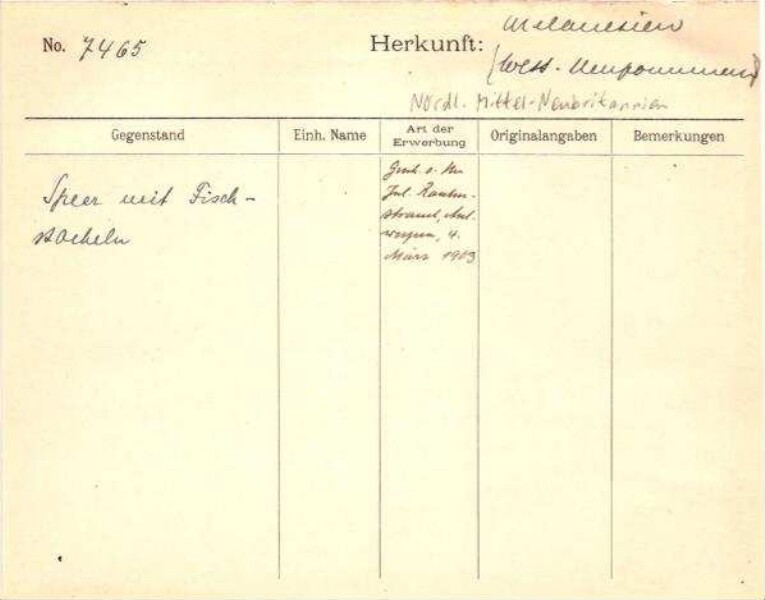 No. 7465
Herkunft: Melanesien
(West-Neupommern)
Nördl. Mittel-Neubritannien
Gegenstand Einh. Name Art der Erwerbung Originalangaben Bemerkungen
Speer mit Fisch-
stacheln
Jul. Rauten-
strauch, Ant.
werpen, 4.
März 1903